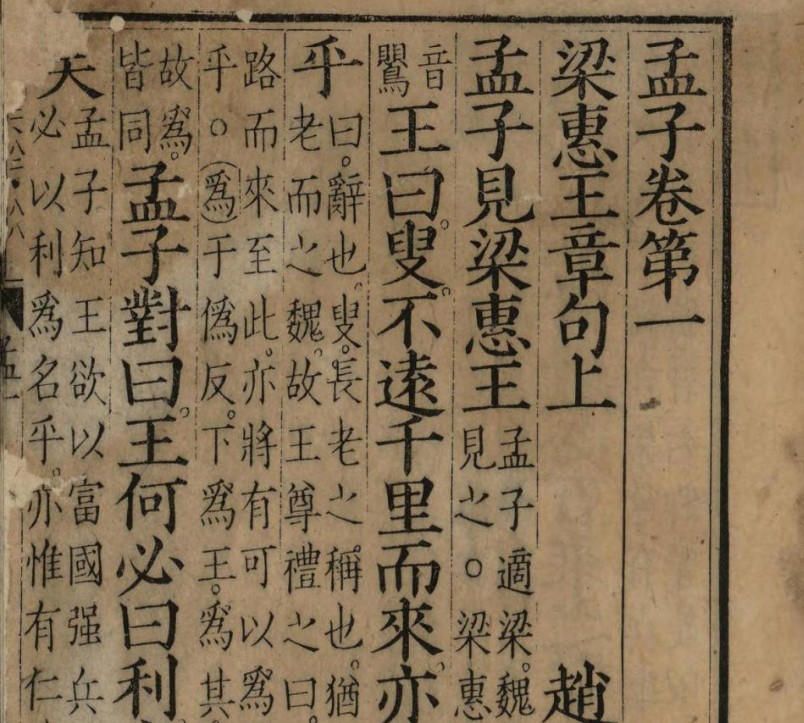 孟子卷第一
梁惠王章句上 趙
孟子見梁惠王
孟子適梁。魏
見之。○梁惠
音
鸎
王曰叟。不遠千里而來。亦
乎
曰。辭也。叟。長老之稱也。猶
老而之魏。故王尊禮之曰。
路而來至此。亦將有可以爲
乎。○(爲)于僞反。下爲王。爲其
故爲。
皆同
孟子對曰。王何必曰利
孟子知王欲以富國强兵
必以利爲名乎。亦惟有仁